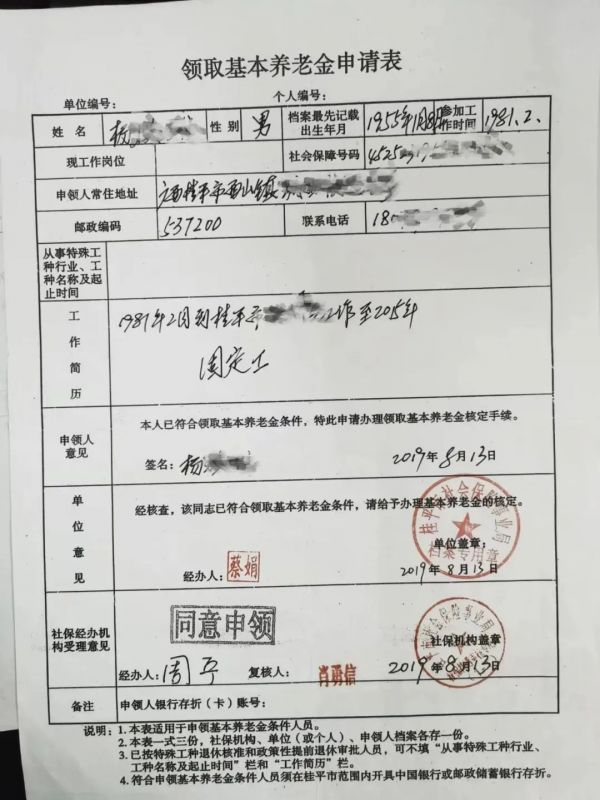 领取基本养老金申请表
单位编号： 个人编号：
姓 名 杨 性 别 男 档案最先记载出生年月 1955年1月8日 参加工作时间 1981.2.
现工作岗位 社会保障号码 45252
申领人常住地址 广西桂平市西山镇
邮政编码 537200 联系电话 18
从事特殊工种行业、工种名称及起止时间
工作简历 1981年2月到桂平市 工作至205年
固定工
申领人意见 本人已符合领取基本养老金条件，特此申请办理领取基本养老金核定手续。
签名：杨 2019年8月13日
单位意见 经核查，该同志已符合领取基本养老金条件，请给予办理基本养老金的核定。
桂平市社会保险事业局
档案专用章
单位盖章：
经办人：蔡娟 2019年8月13日
社保经办机构受理意见 同意申领 社保机构盖章
经办人：周平 复核人：肖勇信 2019年8月13日
备注 申领人银行存折（卡）账号：
说明：1.本表适用于申领基本养老金条件人员。
2.本表一式三份，社保机构、单位（或个人）、申领人档案各存一份。
3.已按特殊工种退休核准和政策性提前退休审批人员，可不填“从事特殊工种行业、
工种名称及起止时间”栏和“工作简历”栏。
4.符合申领基本养老金条件人员须在桂平市范围内开具中国银行或邮政储蓄银行存折。